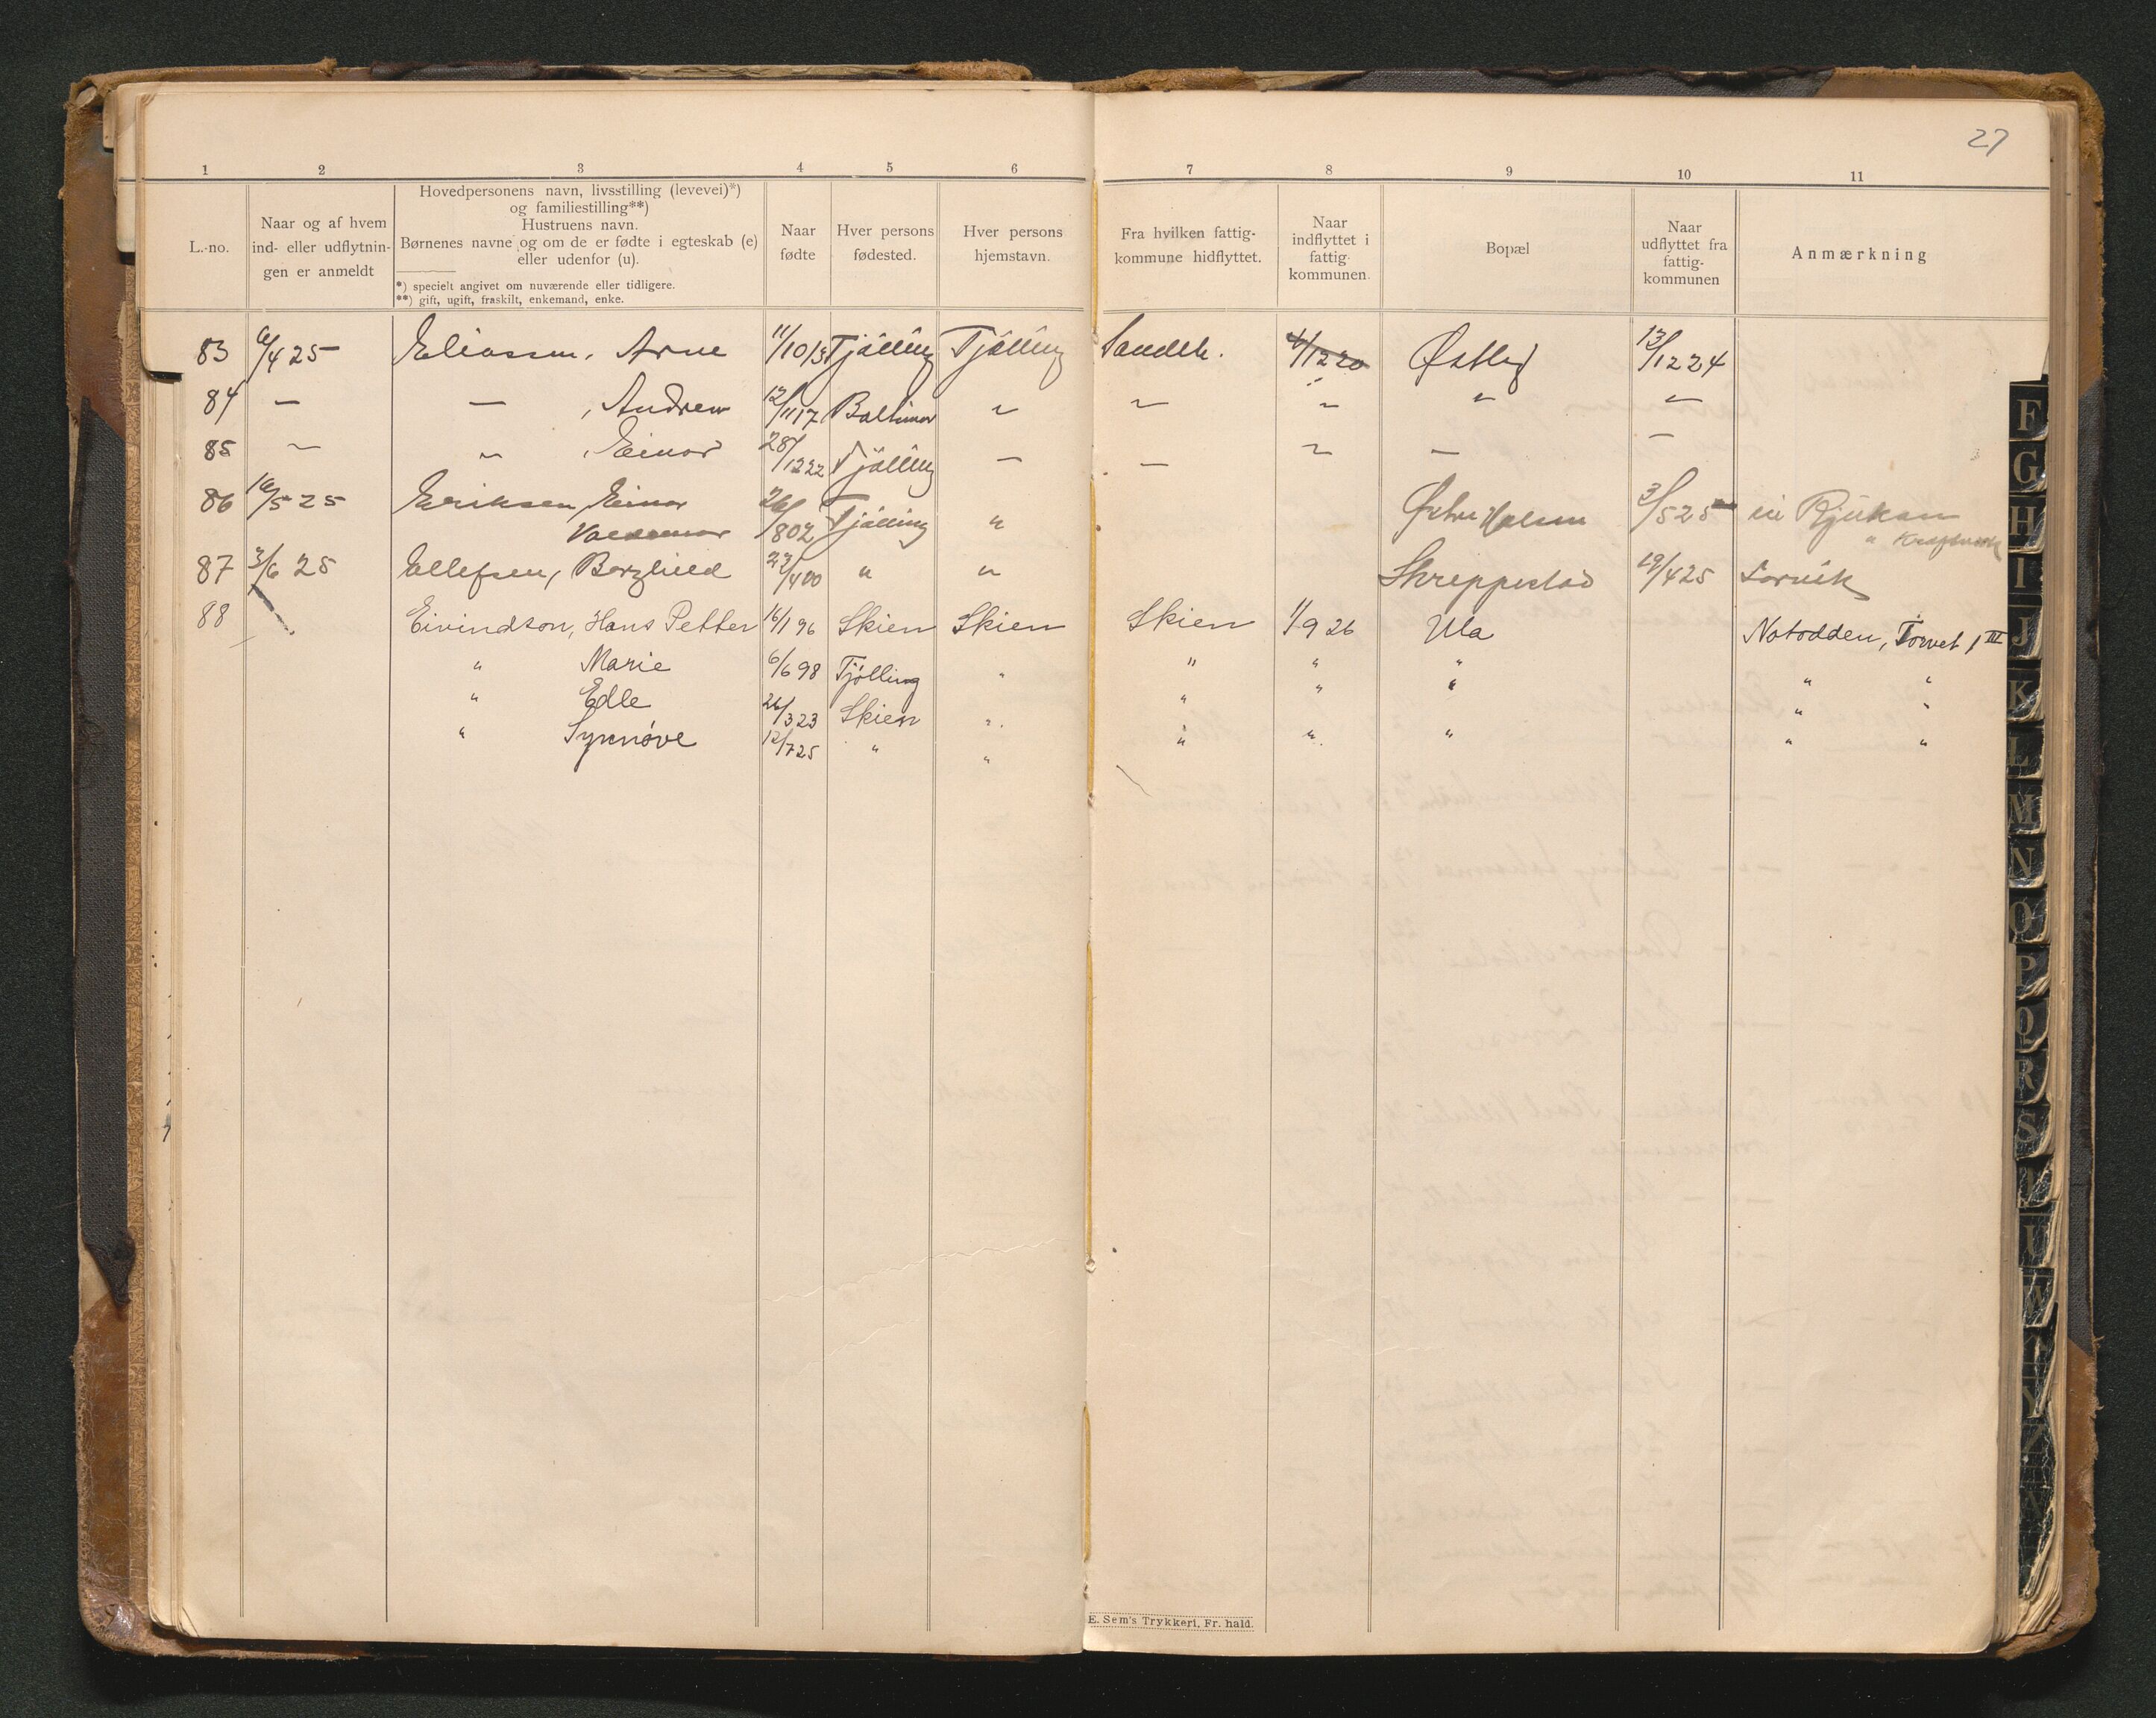 27
1 2 3 4 5 6 7 8 9 10 11
L.-no.
Naar og af hvem
ind- eller udflytnin-
gen er anmeldt
Hovedpersonens navn, livsstilling (levevei)*)
og familiestilling**)
Hustruens navn.
Børnenes navne og om de er fødte i egteskab (e)
eller udenfor (u).
*) specielt angivet om nuværende eller tidligere.
**) gift, ugift, fraskilt, enkemand, enke.
Naar
fødte
Hver persons
fødested.
Hver persons
hjemstavn.
Fra hvilken fattig-
kommune hidflyttet.
Naar
indflyttet i
fattig-
kommunen.
Bopæl
Naar
udflyttet fra
fattig-
kommunen
Anmærkning
83 6/4 25 Eliassen, Arne 11/10 13 Tjølling Tjølling Sandeh. 4/12 20 Østby 13/12 24
84 — — , Andrew 12/11 17 Baltimor " — " " "
85 — " , Einar 28/12 22 Tjølling — — " — —
86 16/5 25 Eriksen, Einar 26/8 02 Tjølling " Østre Halsen 3/5 25 til Rjukan
Valdemar " Kraftverk
87 3/6 25 Ellefsen, Borghild 22/4 00 " " Skreppestad 19/4 25 Larvik
88 Eivindson, Hans Petter 16/1 96 Skien Skien Skien 1/9 26 Ula Notodden, Torvet 1 III
" Marie 6/6 98 Tjølling " " " " " "
" Edle 26/3 23 Skien " " " " " "
" Synnøve 12/7 25 " " " " " " "
E. Sem's Trykkeri, Fr. hald.
F
G
H
I
J
K
L
M
N
O
P
Q
R
S
T
U
W
Y